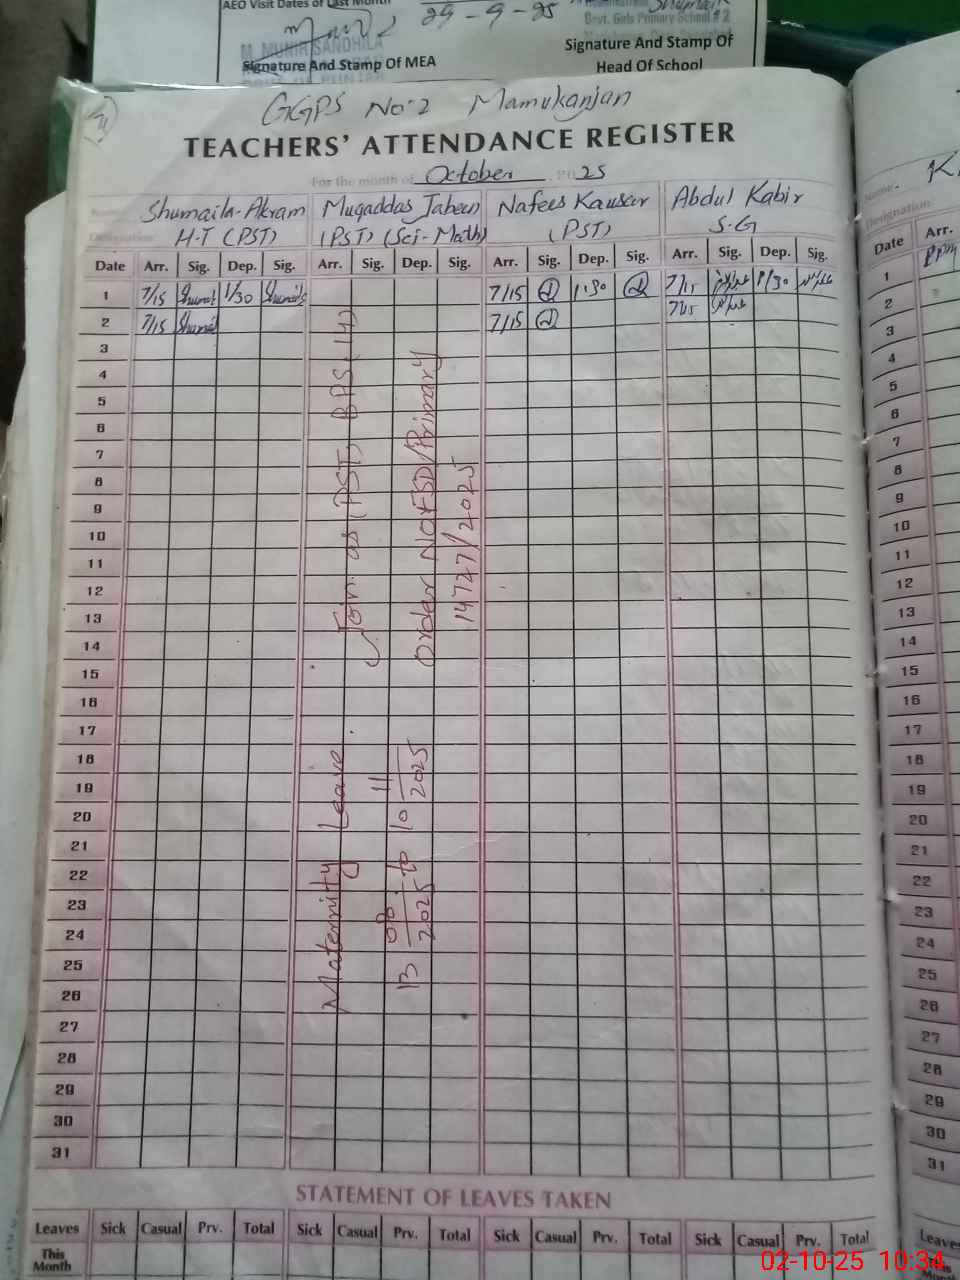 AEO Visit Dates of Last Month
29-9-25
Govt. Girls Primary School # 2
M. MUNIR SANDHILA
Signature And Stamp Of MEA
Signature And Stamp Of
Head Of School
GGPS No:2 Mamukanjan
TEACHERS' ATTENDANCE REGISTER
For the month of October 2025
Name: Shumaila Akram Muqaddas Jabeen Nafees Kausar Abdul Kabir
Designation: H.T (PST) (PST) (Sci-Math) (PST) S.G
Date Arr. Sig. Dep. Sig. Arr. Sig. Dep. Sig. Arr. Sig. Dep. Sig. Arr. Sig. Dep. Sig.
1 7/15 1/30 7/15 1:30 7/15 1/30
2 7/15 7/15 7/15
3
4
5
6
7
8
9
10
11
12
13
14
15
16
17
18
19
20
21
22
23
24
25
26
27
28
29
30
31
Join as (PST) BPS-14)
Order No FSD/Primary
14727/2025
Maternity Leave
13 08 2025 to 10 11 2025
STATEMENT OF LEAVES TAKEN
Leaves Sick Casual Prv. Total Sick Casual Prv. Total Sick Casual Prv. Total Sick Casual Prv. Total
This Month
Name.
Designation:
Date Arr.
1
2
3
4
5
6
7
8
9
10
11
12
13
14
15
16
17
18
19
20
21
22
23
24
25
26
27
28
29
30
31
Leaves
02-10-25 10:34